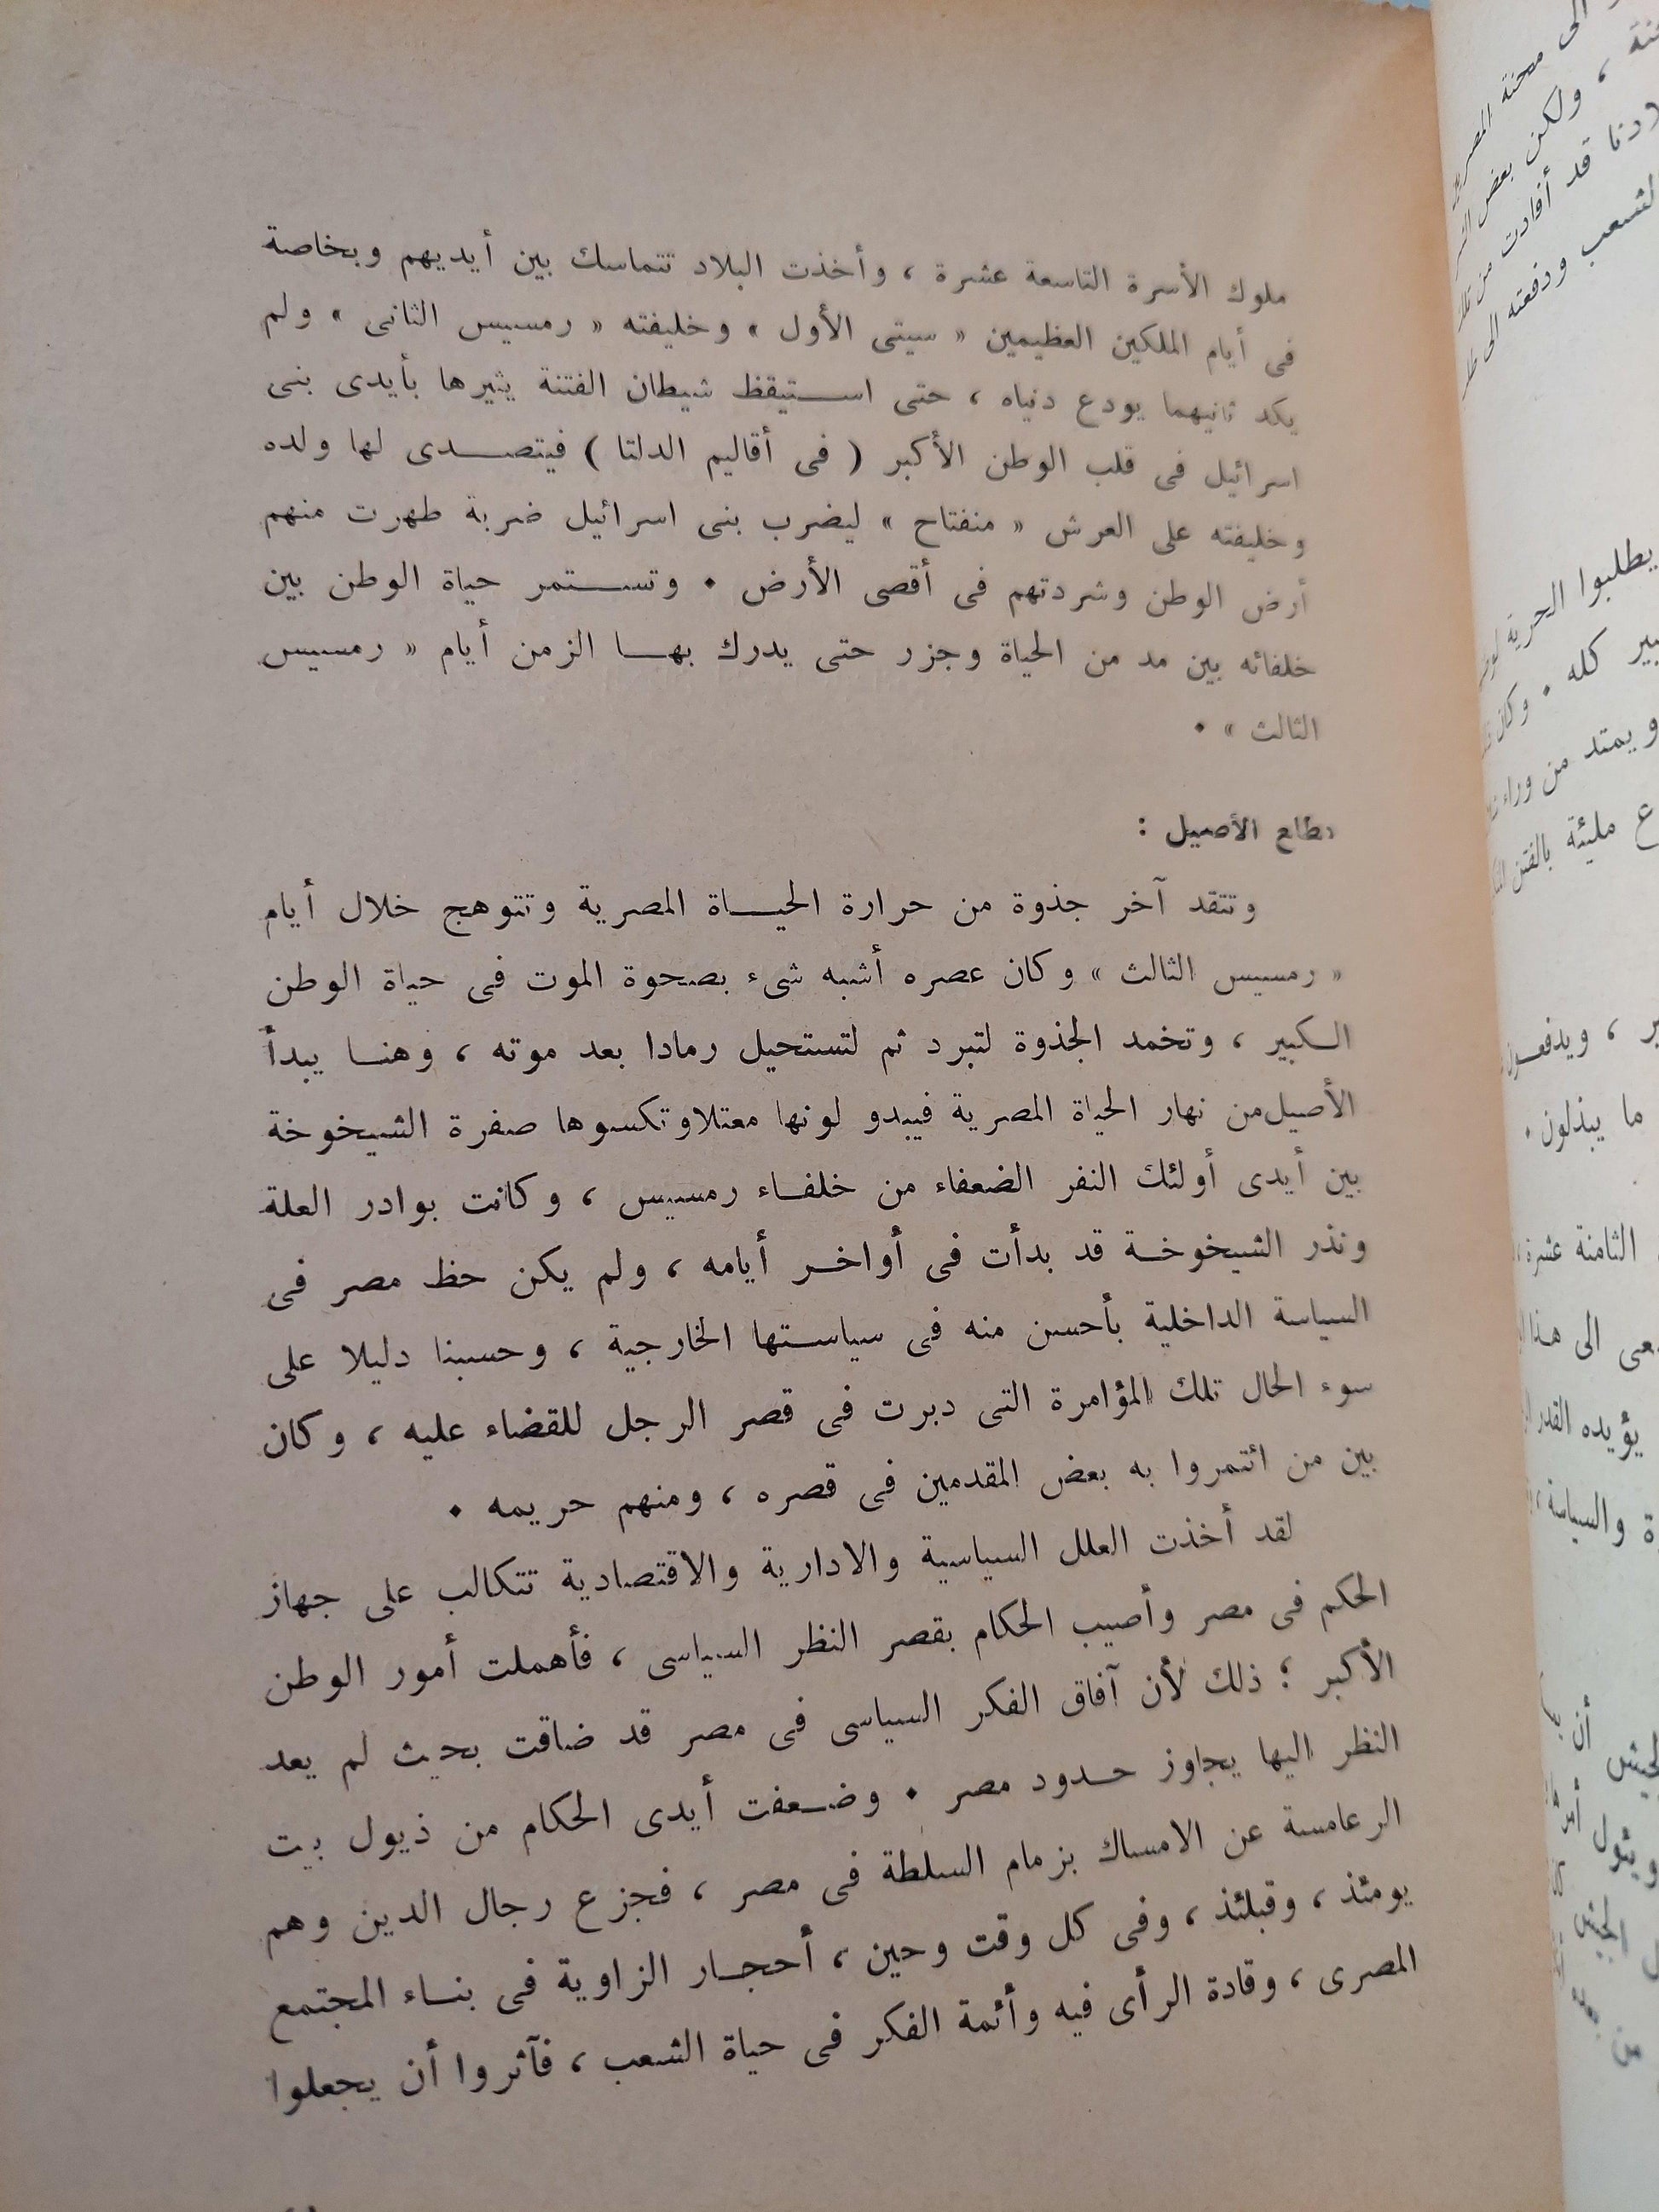 ملوك الأسرة التاسعة عشرة ، وأخذت البلاد تتماسك بين أيديهم وبخاصة
فى أيام الملكين العظيمين « سيتى الأول » وخليفته « رمسيس الثانى » ولم
يكد ثانيهما يودع دنياه ، حتى استيقظ شيطان الفتنة يثيرها بأيدى بنى
اسرائيل فى قلب الوطن الأكبر ( فى أقاليم الدلتا ) فيتصدى لها ولده
وخليفته على العرش « منفتاح » ليضرب بنى اسرائيل ضربة طهرت منهم
أرض الوطن وشردتهم فى أقصى الأرض . وتستمر حياة الوطن بين
خلفائه بين مد من الحياة وجزر حتى يدرك بها الزمن أيام « رمسيس
الثالث » .
الأصيل :
وتتقد آخر جذوة من حرارة الحياة المصرية وتتوهج خلال أيام
« رمسيس الثالث » وكان عصره أشبه شىء بصحوة الموت فى حياة الوطن
الكبير ، وتخمد الجذوة لتبرد ثم لتستحيل رمادا بعد موته ، وهنا يبدأ
الأصيل من نهار الحياة المصرية فيبدو لونها معتلا وتكسوها صفرة الشيخوخة
بين أيدى أولئك النفر الضعفاء من خلفاء رمسيس ، وكانت بوادر العلة
ونذر الشيخوخة قد بدأت فى أواخر أيامه ، ولم يكن حظ مصر فى
السياسة الداخلية بأحسن منه فى سياستها الخارجية ، وحسبنا دليلا على
سوء الحال تلك المؤامرة التى دبرت فى قصر الرجل للقضاء عليه ، وكان
بين من ائتمروا به بعض المقدمين فى قصره ، ومنهم حريمه .
لقد أخذت العلل السياسية والادارية والاقتصادية تتكالب على جهاز
الحكم فى مصر وأصيب الحكام بقصر النظر السياسى ، فأهملت أمور الوطن
الأكبر ؛ ذلك لأن آفاق الفكر السياسى فى مصر قد ضاقت بحيث لم يعد
النظر اليها يجاوز حدود مصر . وضعفت أيدى الحكام من ذيول بيت
الرعامسة عن الامساك بزمام السلطة فى مصر ، فجزع رجال الدين وهم
يومئذ ، وقبلئذ ، وفى كل وقت وحين ، أحجار الزاوية فى بناء المجتمع
المصرى ، وقادة الرأى فيه وأئمة الفكر فى حياة الشعب ، فآثروا أن يجعلوا
الى محنة
، ولكن بعض
قد أفادت من
ودفعته الى
يطلبوا الحرية
كله . وكان
ويمتد من وراء
مليئة بالفتن
، ويدفعون
ما يبذلون .
الثامنة عشرة
الى هذا
يؤيده القدر
والسياسة ،
أن
ويئول
الجيش
من